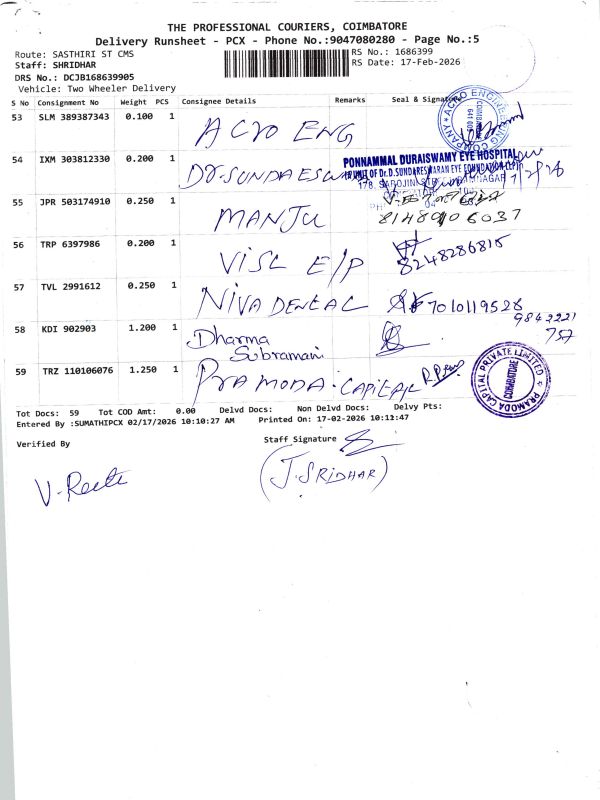 THE PROFESSIONAL COURIERS, COIMBATORE
Delivery Runsheet - PCX - Phone No.:9047080280 - Page No.:5
Route: SASTHIRI ST CMS
RS No.: 1686399
Staff: SHRIDHAR
RS Date: 17-Feb-2026
DRS No.: DCJB168639905
Vehicle: Two Wheeler Delivery
S No Consignment No Weight PCS Consignee Details Remarks Seal & Signature
53 SLM 389387343 0.100 1 ACRO ENG
54 IXM 303812330 0.200 1 DR.SUNDAESWA
PONNAMMAL DURAISWAMY EYE HOSPITAL
(A UNIT OF Dr.D.SUNDARESWARAN EYE FOUNDATION (LLP)
178, SAROJINI STREET, RAM NAGAR
55 JPR 503174910 0.250 1 MANJU
8148906037
56 TRP 6397986 0.200 1 VISL E/P 8248286815
57 TVL 2991612 0.250 1 NIVA DENTAL 7010119528
58 KDI 902903 1.200 1 Dharma Subramani 9842221 757
59 TRZ 110106076 1.250 1 PRAMODA. CAPITAL
PRAMODA CAPITAL PRIVATE LIMITED
COIMBATORE
Tot Docs: 59 Tot COD Amt: 0.00 Delvd Docs: Non Delvd Docs: Delvy Pts:
Entered By :SUMATHIPCX 02/17/2026 10:10:27 AM Printed On: 17-02-2026 10:11:47
Verified By
Staff Signature
(J.SRIDHAR)